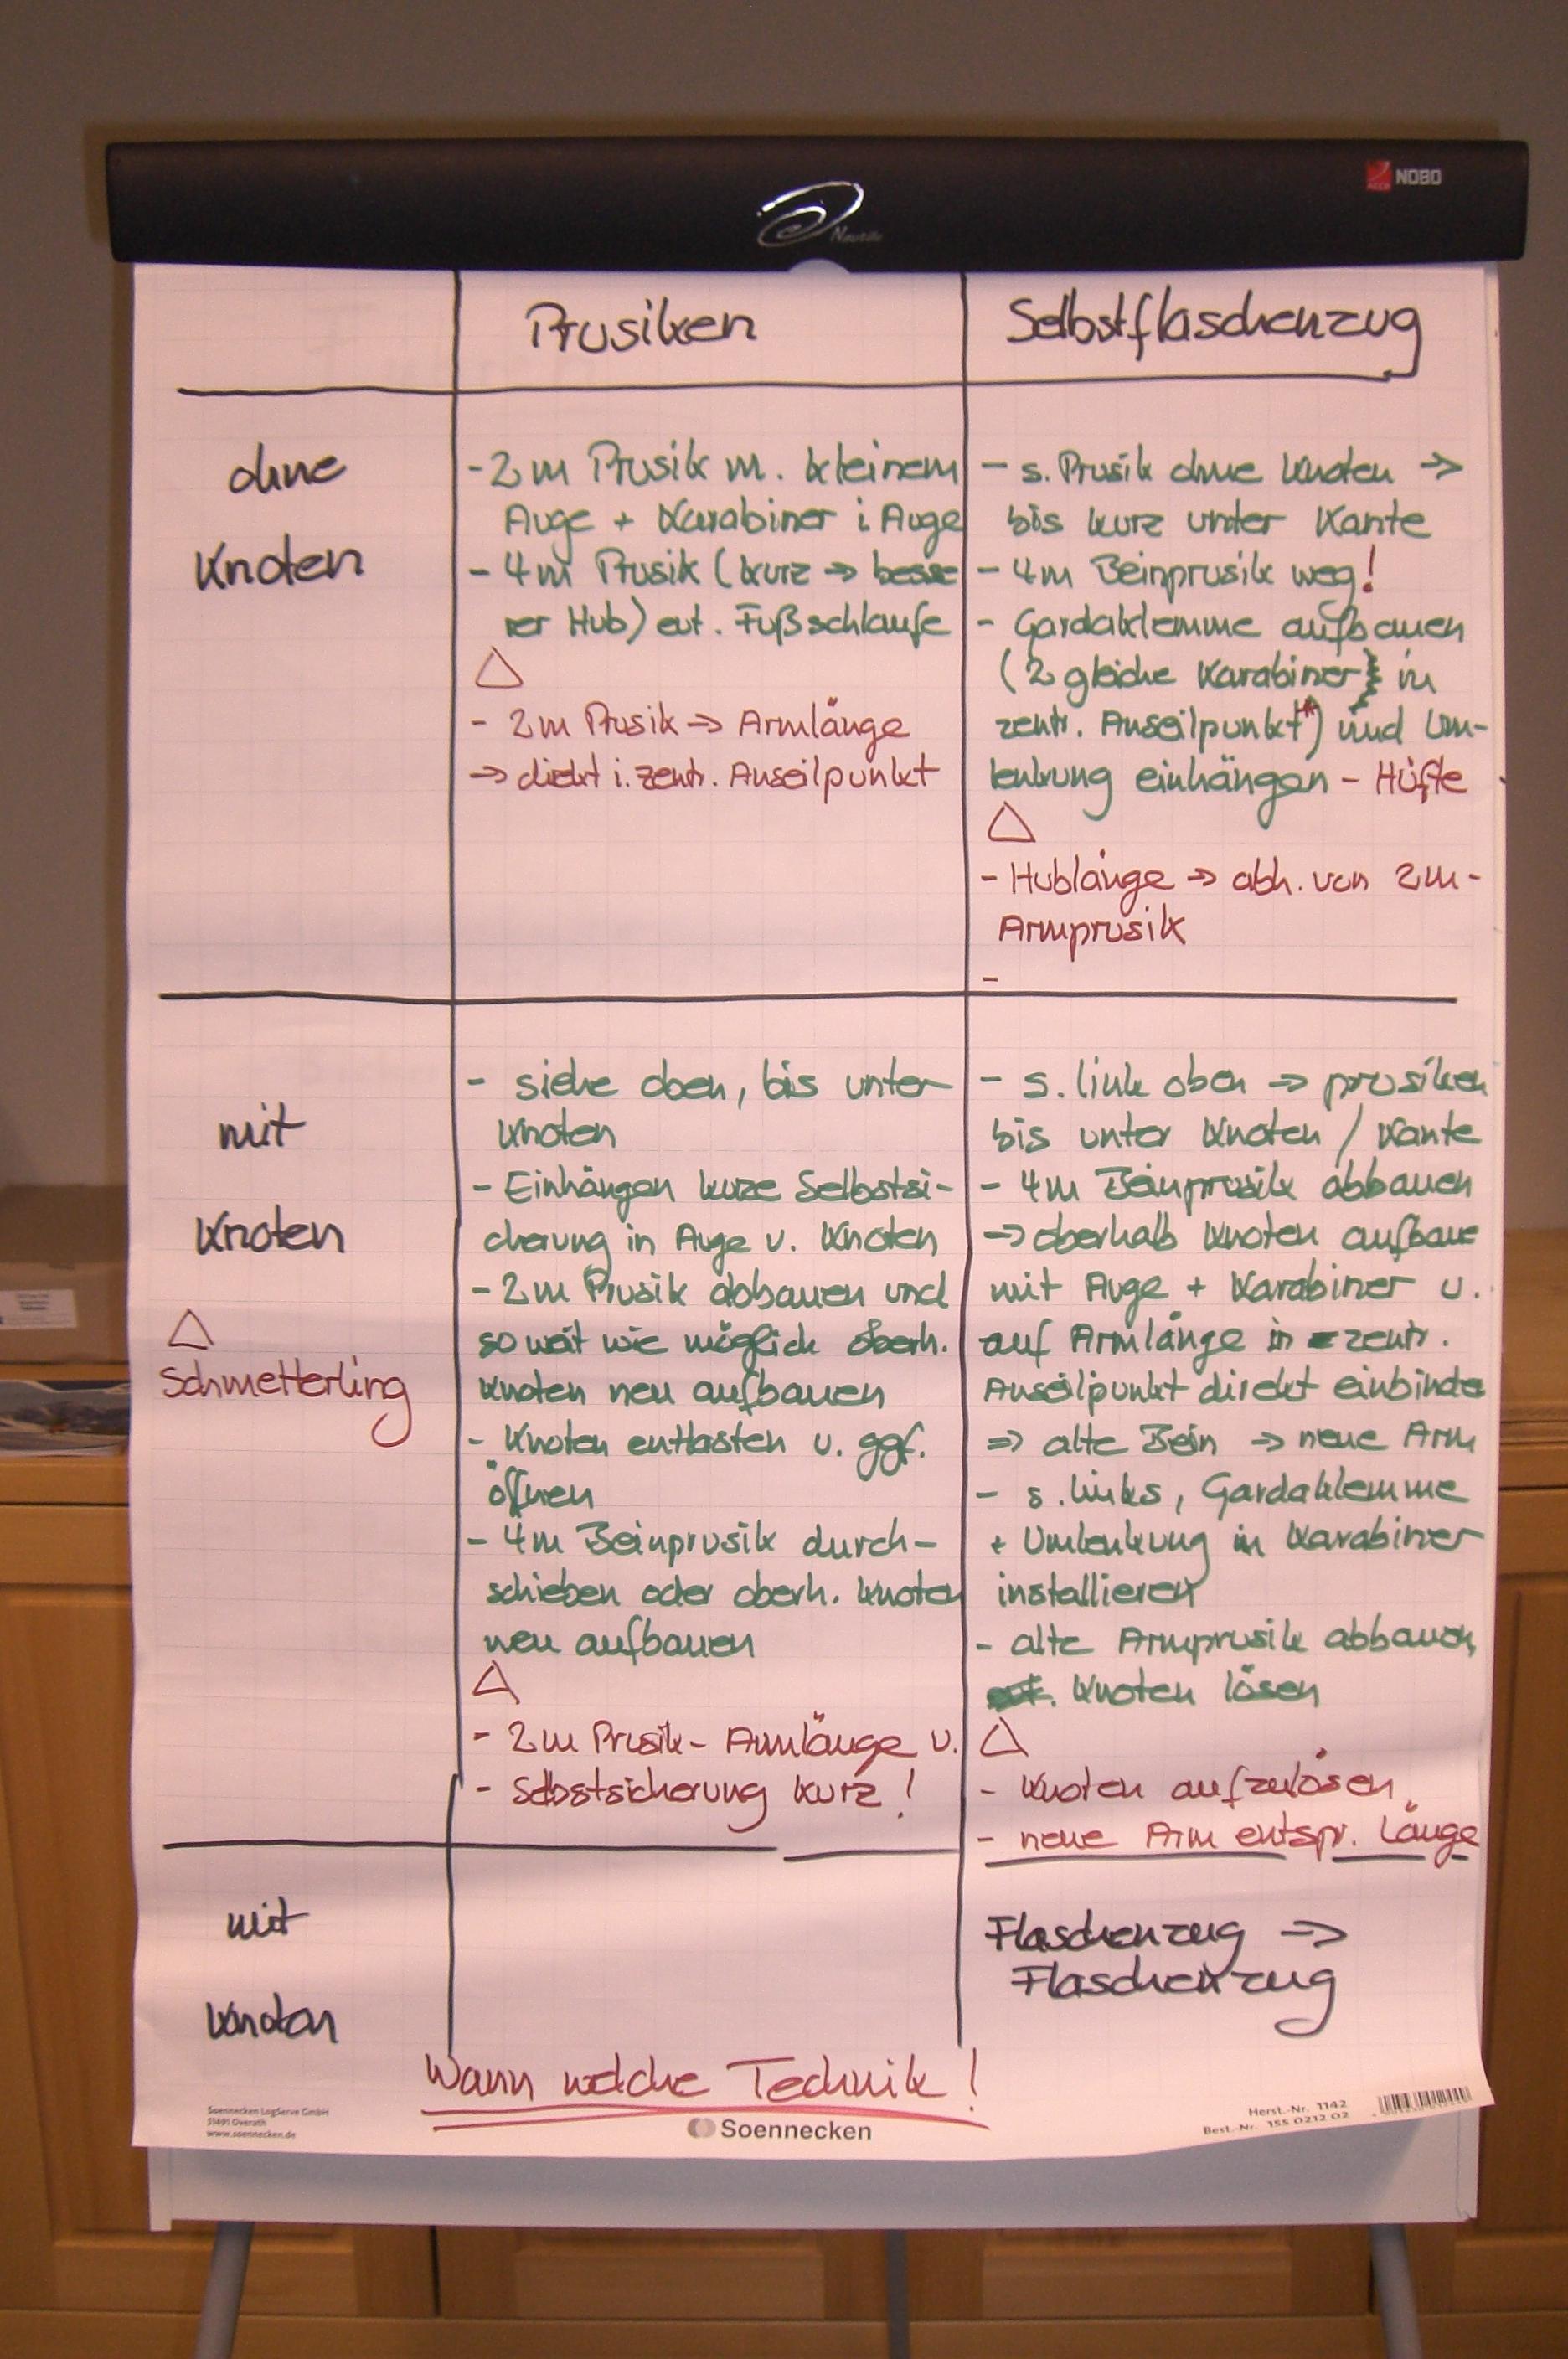 NOBO
Nautile
Prusiken
Selbstflaschenzug
ohne
Knoten
- 2m Prusik m. kleinem
Auge + Karabiner i Auge
- 4m Prusik (kurz → besse
rer Hub) evt. Fußschlaufe
- 2m Prusik → Armlänge
→ direkt i. zentr. Anseilpunkt
- s. Prusik ohne Knoten →
bis kurz unter Kante
- 4m Beinprusik weg!
- Gardaklemme aufbauen
(2 gleiche Karabiner in
zentr. Anseilpunkt) und Um-
lenkung einhängen - Hüfte
- Hublänge → abh. von 2m-
Armprusik
-
mit
Knoten
Schmetterling
- siehe oben, bis unter
Knoten
- Einhängen kurze Selbstsi-
cherung in Auge v. Knoten
- 2m Prusik abbauen und
so weit wie möglich oberh.
Knoten neu aufbauen
- Knoten entlasten u. ggf.
öffnen
- 4m Beinprusik durch-
schieben oder oberh. Knoten
neu aufbauen
- 2m Prusik - Armlänge u.
- Selbstsicherung kurz!
- s. link oben → prusiken
bis unter Knoten / Kante
- 4m Beinprusik abbauen
→ oberhalb Knoten aufbaue
mit Auge + Karabiner u.
auf Armlänge in zentr.
Anseilpunkt direkt einbinde
⇒ alte Bein → neue Arm
- s. links, Gardaklemme
+ Umlenkung in Karabiner
installieren
- alte Armprusik abbauen,
Knoten lösen
- Knoten aufzulösen
- neue Arm entspr. Länge
mit
Knoten
Flaschenzug →
Flaschenzug
Wann welche Technik!
Soennecken LogServe GmbH
51491 Overath
www.soennecken.de
Soennecken
Herst.-Nr. 1142
Best.-Nr. 155 0212 02